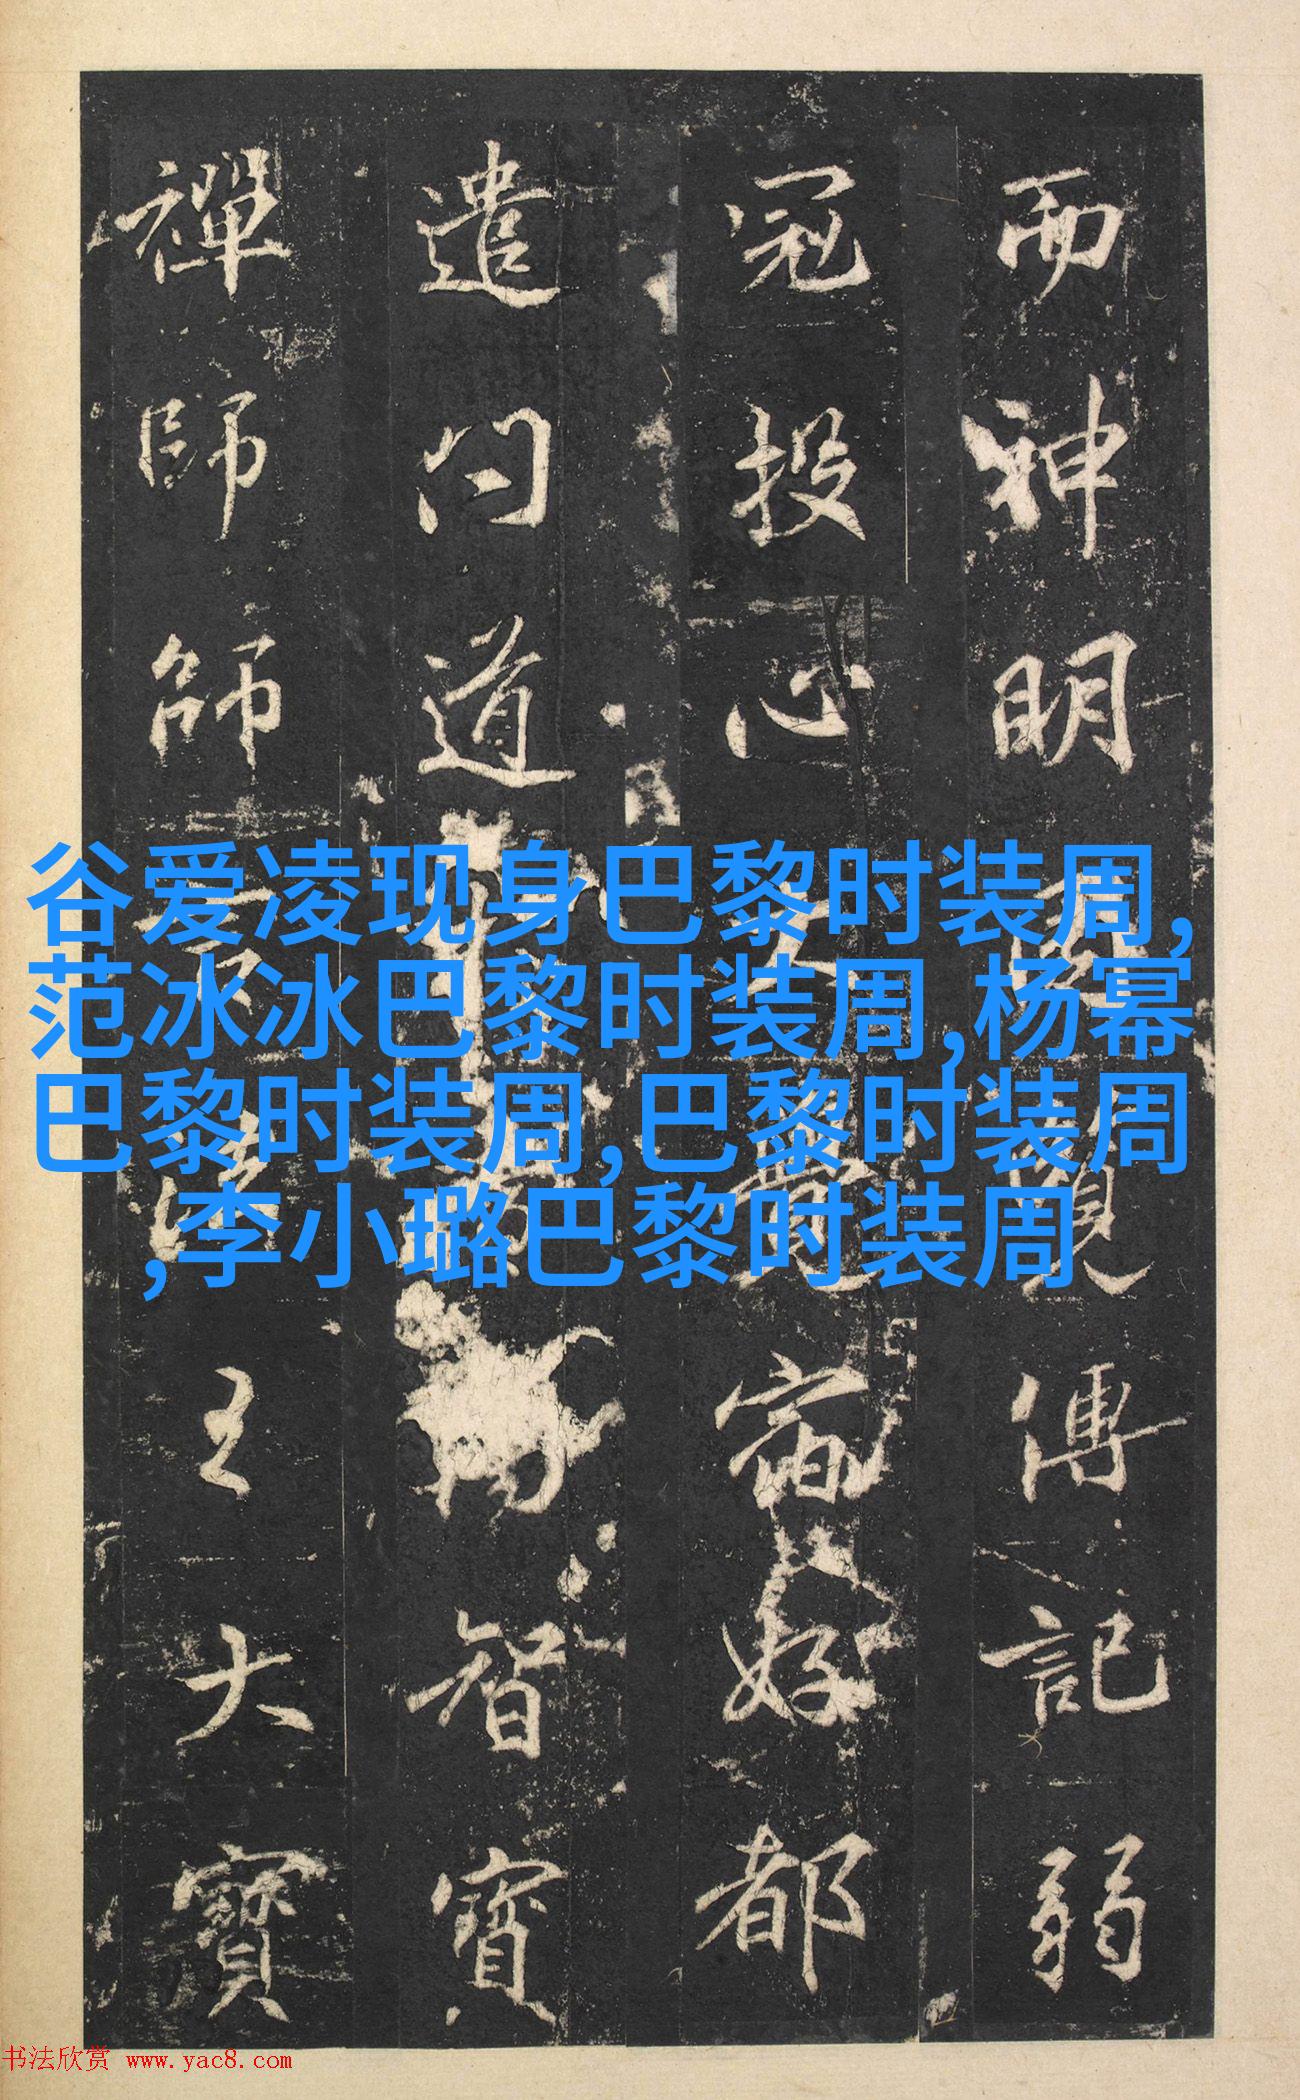 而神明傳記弱
冠投心宿好都
遣問道智寶
禪師師言王大寶
谷爱凌现身巴黎时装周,
范冰冰巴黎时装周,杨幂
巴黎时装周,巴黎时装周
,李小璐巴黎时装周
书法欣赏 www.yac8.com